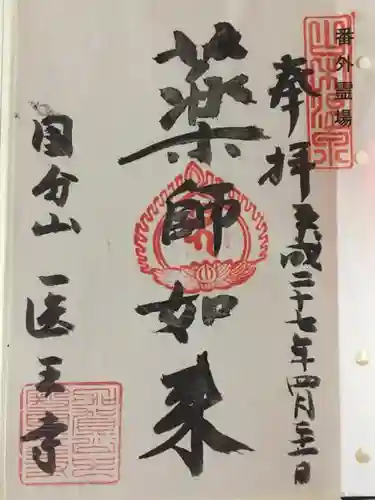 番外霊場
奉拝
平成二十七年四月三十一日
薬師如来
国分山
医王寺